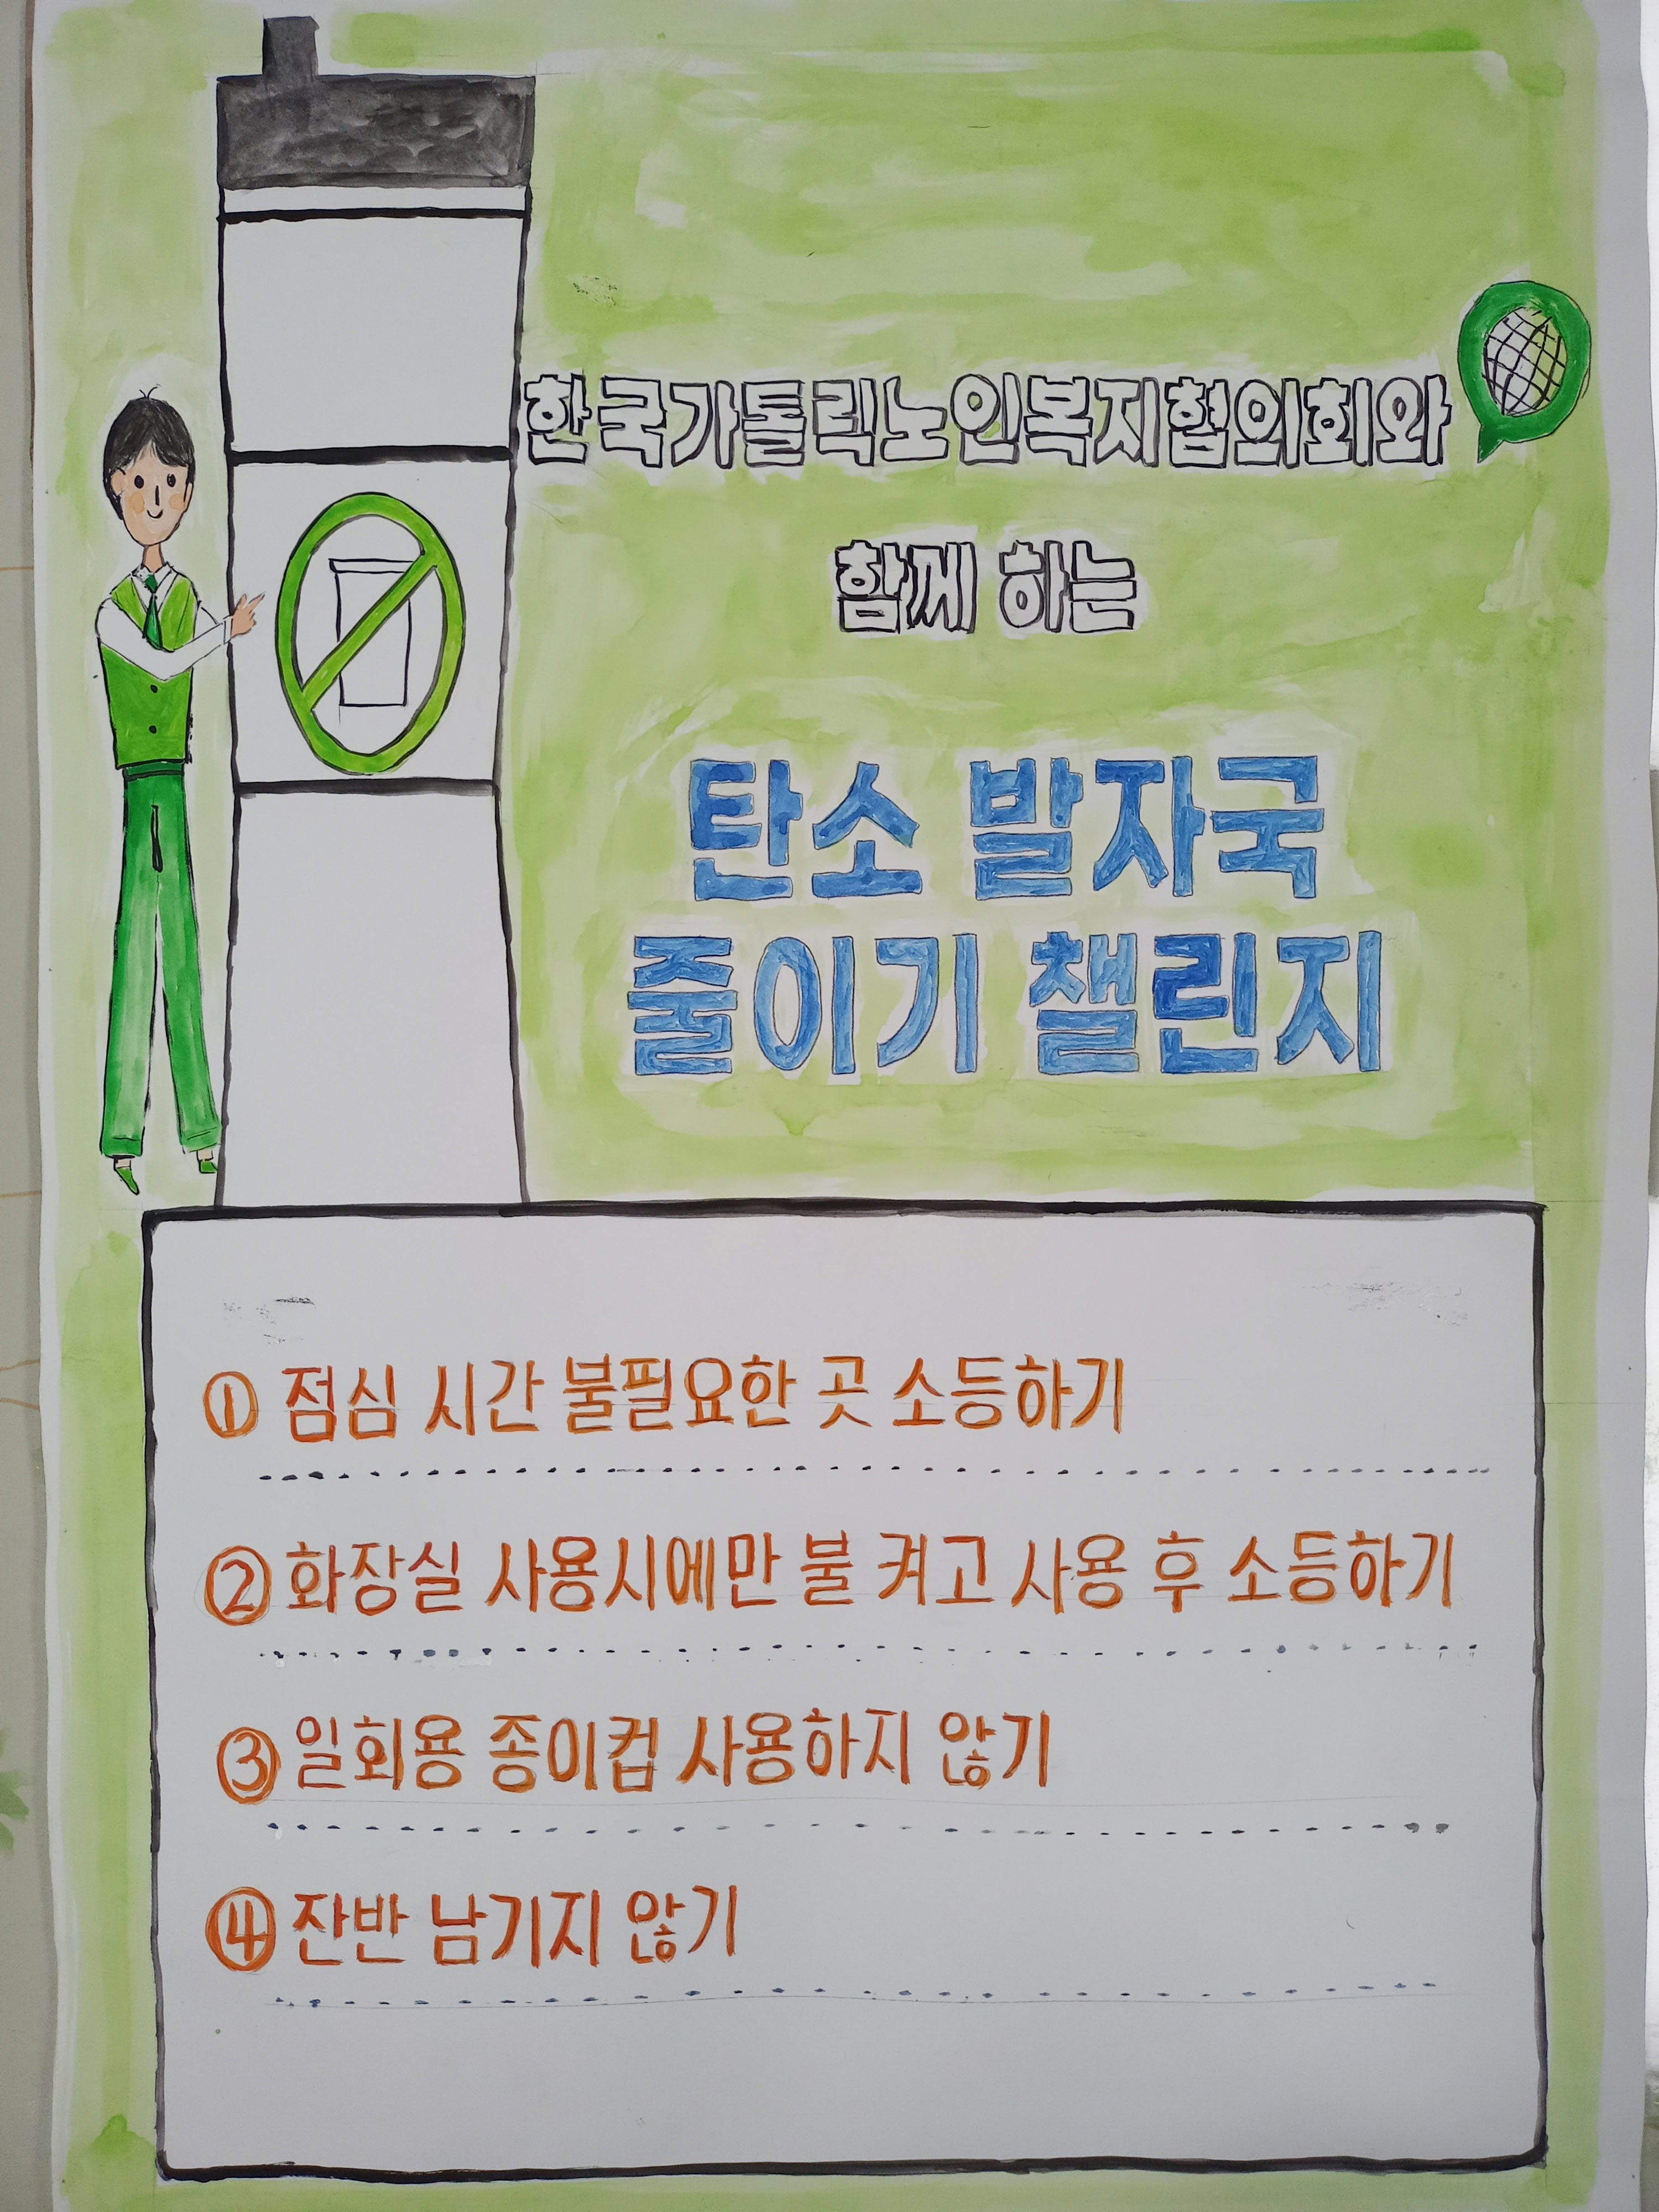 한국가톨릭노인복지협의회와
함께 하는
탄소 발자국
줄이기 챌린지
① 점심 시간 불필요한 곳 소등하기
② 화장실 사용시에만 불 켜고 사용 후 소등하기
③ 일회용 종이컵 사용하지 않기
④ 잔반 남기지 않기